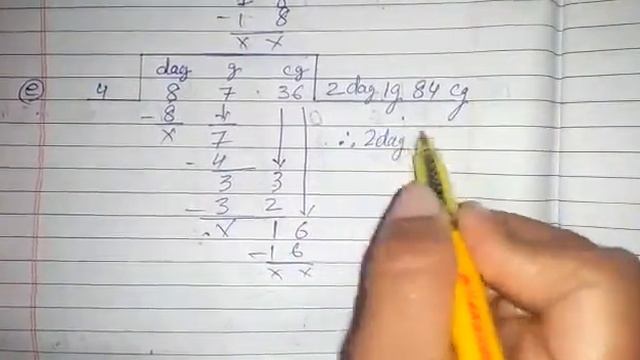 - 1 8
x x
dag g cg
(e) 4 8 7 . 36 2 dag 1g 84 cg
- 8 ↓
x 7 ∴ 2dag
- 4
3 3
- 3 2
x 1 6
- 1 6
x x